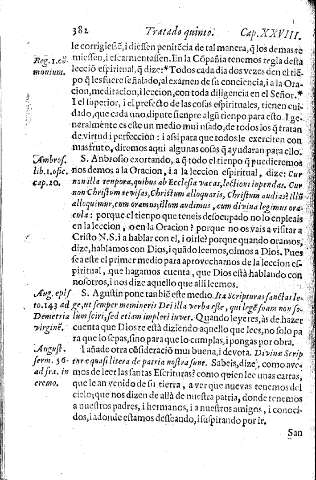 382 Tratado quinto. Cap. XXVIII.
le corrigiessē, i diessen penitēcia de tal manera, q̃ los demas te
Reg. 1. cō miessen, i escarmentassen. En la Cōpañia tenemos regla desta
munium. lecciō espiritual, q̃ dize: * Todos cada dia dos vezes den el tiē-
po q̃ les fuere señalado, al examen de su conciencia, i a la Ora-
cion, meditacion, i leccion, con toda diligencia en el Señor. *
I el superior, i el prefecto de las cosas espirituales, tienen cui-
dado, que cada uno dipute siempre algũ tiempo para esto. I ge-
neralmente es este un medio mui usado, de todos los q̃ tratan
de virtud i perfeccion: i assi para que todos le exerciten con
mas fruto, diremos aqui algunas cosas q̃ ayudaràn para ello.
Ambros. S. Anbrosio exortando, a q̃ todo el tiempo q̃ pudieremos
lib. 1. offic. nos demos a la Oracion, i a la leccion espiritual, dize: Cur
cap. 20. non illa tempora, quibus ab Ecclesia vacas, lectioni impendas. Cur
non Christum revisas, Christum alloquaris, Christum audias? illũ
alloquimur, cum oramus, illum audimus, cum divina legimus ora
cula: porque el tiempo que teneis desocupado no lo enpleais
en la leccion, o en la Oracion? porque no os vais a visitar a
Cristo N. S. i a hablar con el, i oirle? porque quando oramos,
dize, hablamos con Dios, i quādo leemos, oimos a Dios. Pues
sea este el primer medio para aprovecharnos de la leccion es-
piritual, que hagamos cuenta, que Dios está hablando con
nosotros, i nos dize aquello que alli leemos.
Aug. epist S. Agustin pone tanbiē este medio. Ita Scripturas sanctas le-
to. 143 ad ge, ut semper memineris Dei illa verba esse, qui legē suam non so-
Demetria lum sciri, sed etiam impleri iuvet. Quando leyeres, às de hazer
virginē. cuenta que Dios te està diziendo aquello que lees, no solo pa
ra que lo sepas, sino para que lo cumplas, i pongas por obra.
August. I añade otra cōsideraciō mui buena, i devota. Divinæ Scrip
serm. 56. turæ quasi literæ de patria nostra sunt. Sabeis, dize, como ave-
ad fra. in mos de leer las santas Escrituras? como quien lee unas cartas,
eremo. que le an venido de su tierra, a ver que nuevas tenemos del
cielo; que nos dizen de allà de nuestra patria, donde tenemos
a nuestros padres, i hermanos, i a nuestros amigos, i conoci-
dos, i adonde estamos deseando, i suspirando por ir.
San